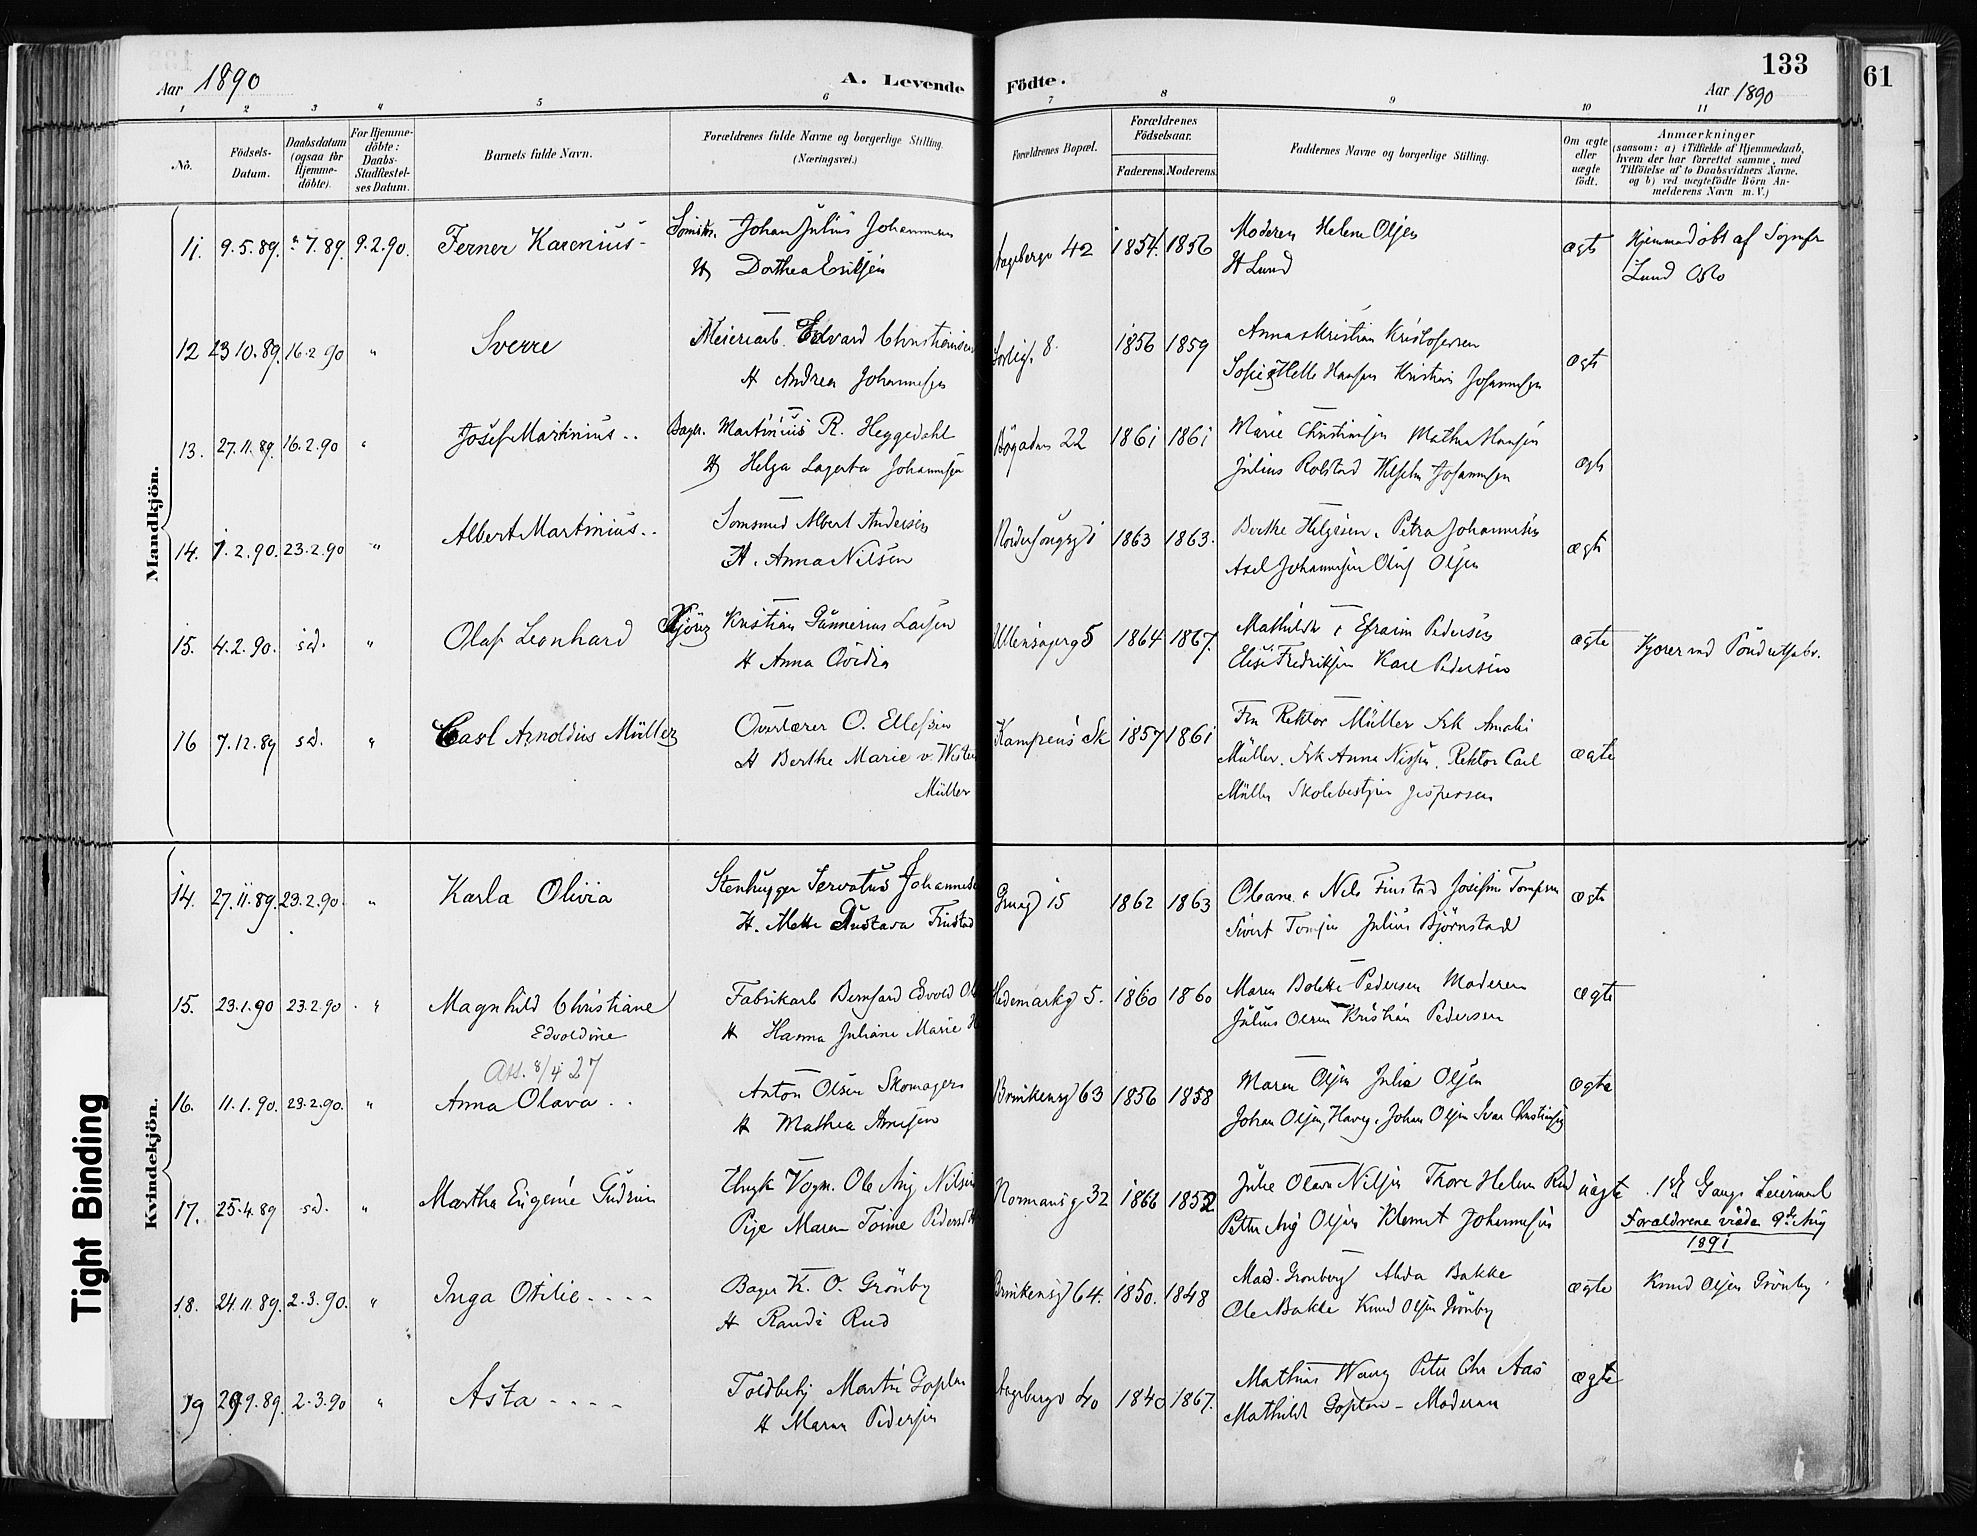 133
61
Aar 1890
A. Levende Födte.
Aar 1890
1 2 3 4 5 6 7 8 9 10 11
No.
Födsels-Datum.
Daabsdatum (ogsaa for Hjemme-döbte).
For Hjemme-döbte: Daabs-Stadfæstel-ses Datum.
Barnets fulde Navn.
Forældrenes fulde Navne og borgerlige Stilling.
(Næringsvei.)
Forældrenes Bopæl.
Forældrenes Födselsaar.
Faderens. Moderens.
Faddernes Navne og borgerlige Stilling.
Om ægte eller uægte födt.
Anmærkninger
(saasom: a) i Tilfælde af Hjemmedaab,
hvem der har forrettet samme, med
Tilföielse af to Daabsvidners Navne,
og b) ved uægtefödte Börn An-
melderens Navn m. V.)
Mandkjön.
11. 9.5.89. 7.89. 9.2.90. Ferner Karenius Johan Julius Johannsen 42 1854. 1856 Moderen Helene Olsen ægte Hjemmedöbt af Sognepr
H Dorthea Eriksen H Lund Lund Oslo
12 23 10.89. 16.2 90 " Sverre Meieriarb. Edvard Christiansen 8. 1856 1859 Anna & Kristian Kristofersen ægte
H Andrea Johannesen Sofie & Helle Hansen Kristian Johannesen
13. 27.11.89. 16.2.90 " Josef Martinius.. Bager. Martinius R. Heggedahl Bögaden 22 1861 1861 Marie Christiansen Mathea Hansen ægte
H Helga Lagerta Johannesen Julius Rolstad Wilhelm Johannesen
14. 1.2.90. 23.2.90 " Albert Martinius.. Tomsmed Albert Andersen 1 1863 1863. Berthe Helgesen, Petra Johannesen ægte
H. Anna Nilsen Axel Johannesen Oluf Olsen
15. 4.2.90. sd. " Olaf Leonhard Kjörer Kristian Gunnerius Larsen Ullensagerg 5 1864 1867. Mathilde & Efraim Pedersen ægte Kjorer ved
H Anna Ovidia Elise Fredriksen Karl Pedersen
16 7.12.89 sd. " Carl Arnoldius Müller Overlærer O. Ellefsen Kampens Sk 1857 1861 Fru Rektor Müller Frk Amalie ægte
H Berthe Marie v. Westen Müller. Frk Anna Nissen. Rektor Carl
Müller Müller Skolebestyrer Jespersen
Kvindekjön.
14. 27.11.89. 23.2.90. " Karla Olivia Stenhugger Servatus Johannese 15 1862 1863 Oleane & Nils Finstad Josefine Tomesen ægte
H. Mette Gustava Finstad Sivert Julius Björnstad
15. 23.1.90 23.2.90 " Magnhild Christiane Fabrikarb Bernhard Edvold Ol Hedemarkg 5. 1860 1860 Maren Bolette Pedersen Moderen ægte
Edvoldine H Hanna Juliane Marie Julius Olsen Kristian Pedersen
Att. 8/4 27
16. 11.1.90. 23.2.90. " Anna Olava.. Anton Olsen Skomager Brinkensg 63 1856 1858 Maren Olsen Julie Olsen ægte
H Mathea Arnesen Johan Olsen, Johan Olsen Ivar Christensen
17. 25.4.89 sd. " Martha Eugenie Gudrun Vogn. Ole Aug Nilsen Normansg 32 1866 1852 Julie Olava Nilsen Thore Helene Rud uægte 1ste Gangs Leiermaal
Pige Maren Tomine Pedersd Petter Aug Olsen Klemet Johannesen Forældrene viede 9de Aug
1891
18. 24.11.89. 2.3.90. " Inga Otilie.... Bager K. O. Grönby Brinkensg 64. 1850. 1848 Mad. Gronberg Alida Bakke ægte Knud Olsen Grönby
H Randi Rud Ole Bakke Knud Olsen Grönby
19 29 9.89. 2.3.90 " Asta.... Toldbetj Martin Goplen 40 1840 1867. Mathias Wang Peter Chr Aas ægte
H Maren Pedersen Mathilde Goplen – Moderen
Tight Binding